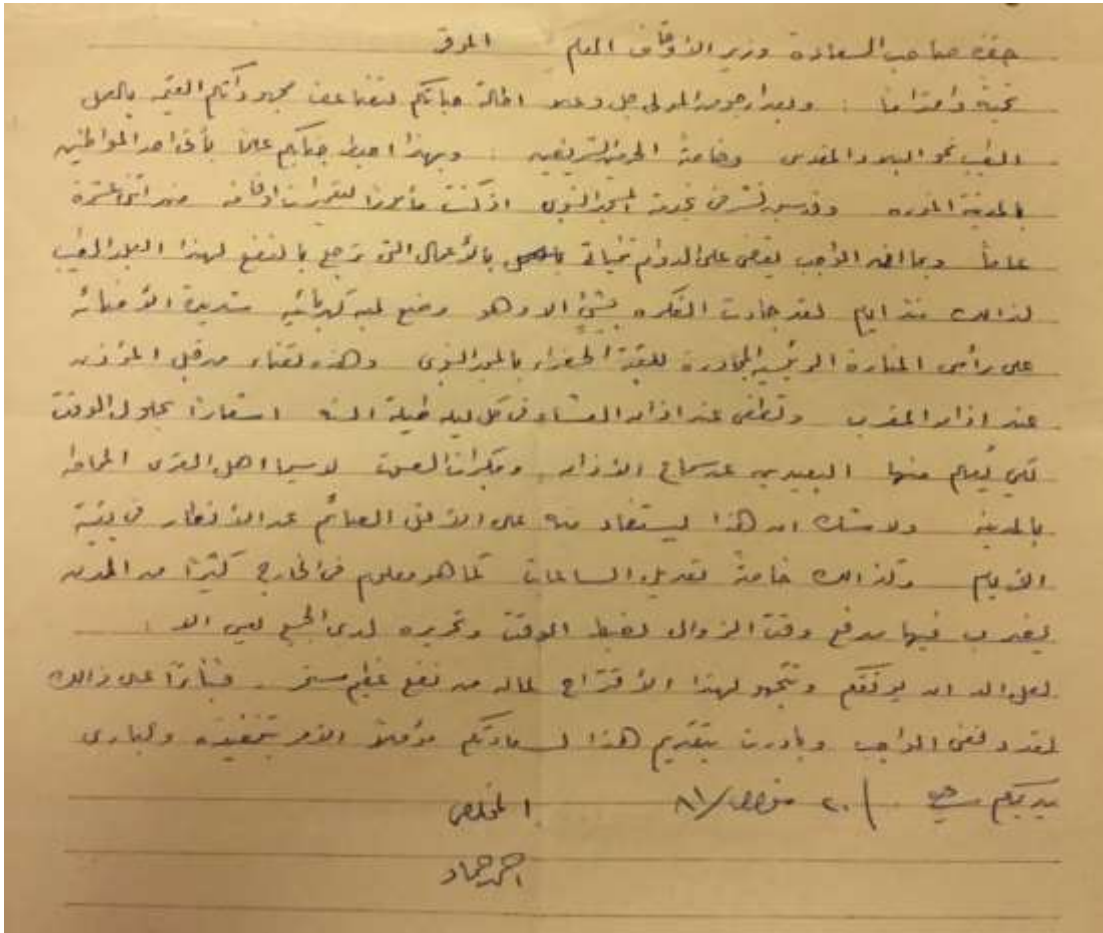 حضرة صاحب السعادة وزير الأوقاف العام الموقر
تحية واحتراما : وبعد ارجو من المولى جل وعلا اطالة حياتكم لتضاعف مجهوداتكم القيمة بالعمل
الطيب نحو البلاد المقدسة وخاصة الحرمين الشريفين : وبهذا احيط جنابكم علما بأني احد المواطنين
بالمدينة المنورة وقد سبق لي شرف خدمة المسجد النبوي اذ كنت مأمورا منذ اثني عشرة
عاماً وبما ان الواجب يقضي على الدوام بالأعمال التي ترجع بالنفع لهذا البلد الطيب
لذالك منذ ايام لقد جادت الفكره بشيئ الا وهو وضع لمبه كهربائيه شديدة الأضائه
على رأس المنارة الرئيسية المجاورة للقبة الخضراء بالمسجد النبوي وهذه تضاء من قبل المؤذن
عند اذان المغرب وتطفى عند اذان العشاء في كل ليله طيلة السنه اشعارا بحلول الوقت
لكي يعلم منها البعيدين عن سماع الأذان ومكبرات الصوت لاسيما اهل القرى المحاطه
بالمدينه ولا شك ان هذا ليستفاد منه على الأخص الصائم عند الأفطار في بقية
الأيام وكذالك خاصة تعديل الساعات كما هو معلوم في الخارج كثيرا من المدن
يضرب فيها مدفع وقت الزوال لضبط الوقت وتحريره لدى الجميع
لعل الله ان يوفقكم وتتجهو لهذا الأقتراح لما له من نفع عظيم مستمر . فبناءً على ذالك
لقد دفعني الواجب وبادرت بتقديم هذا لسعادتكم مؤملا الأمر بتنفيذه والباري
يديكم ٢٠ / ٨١ المخلص
احمد حماد